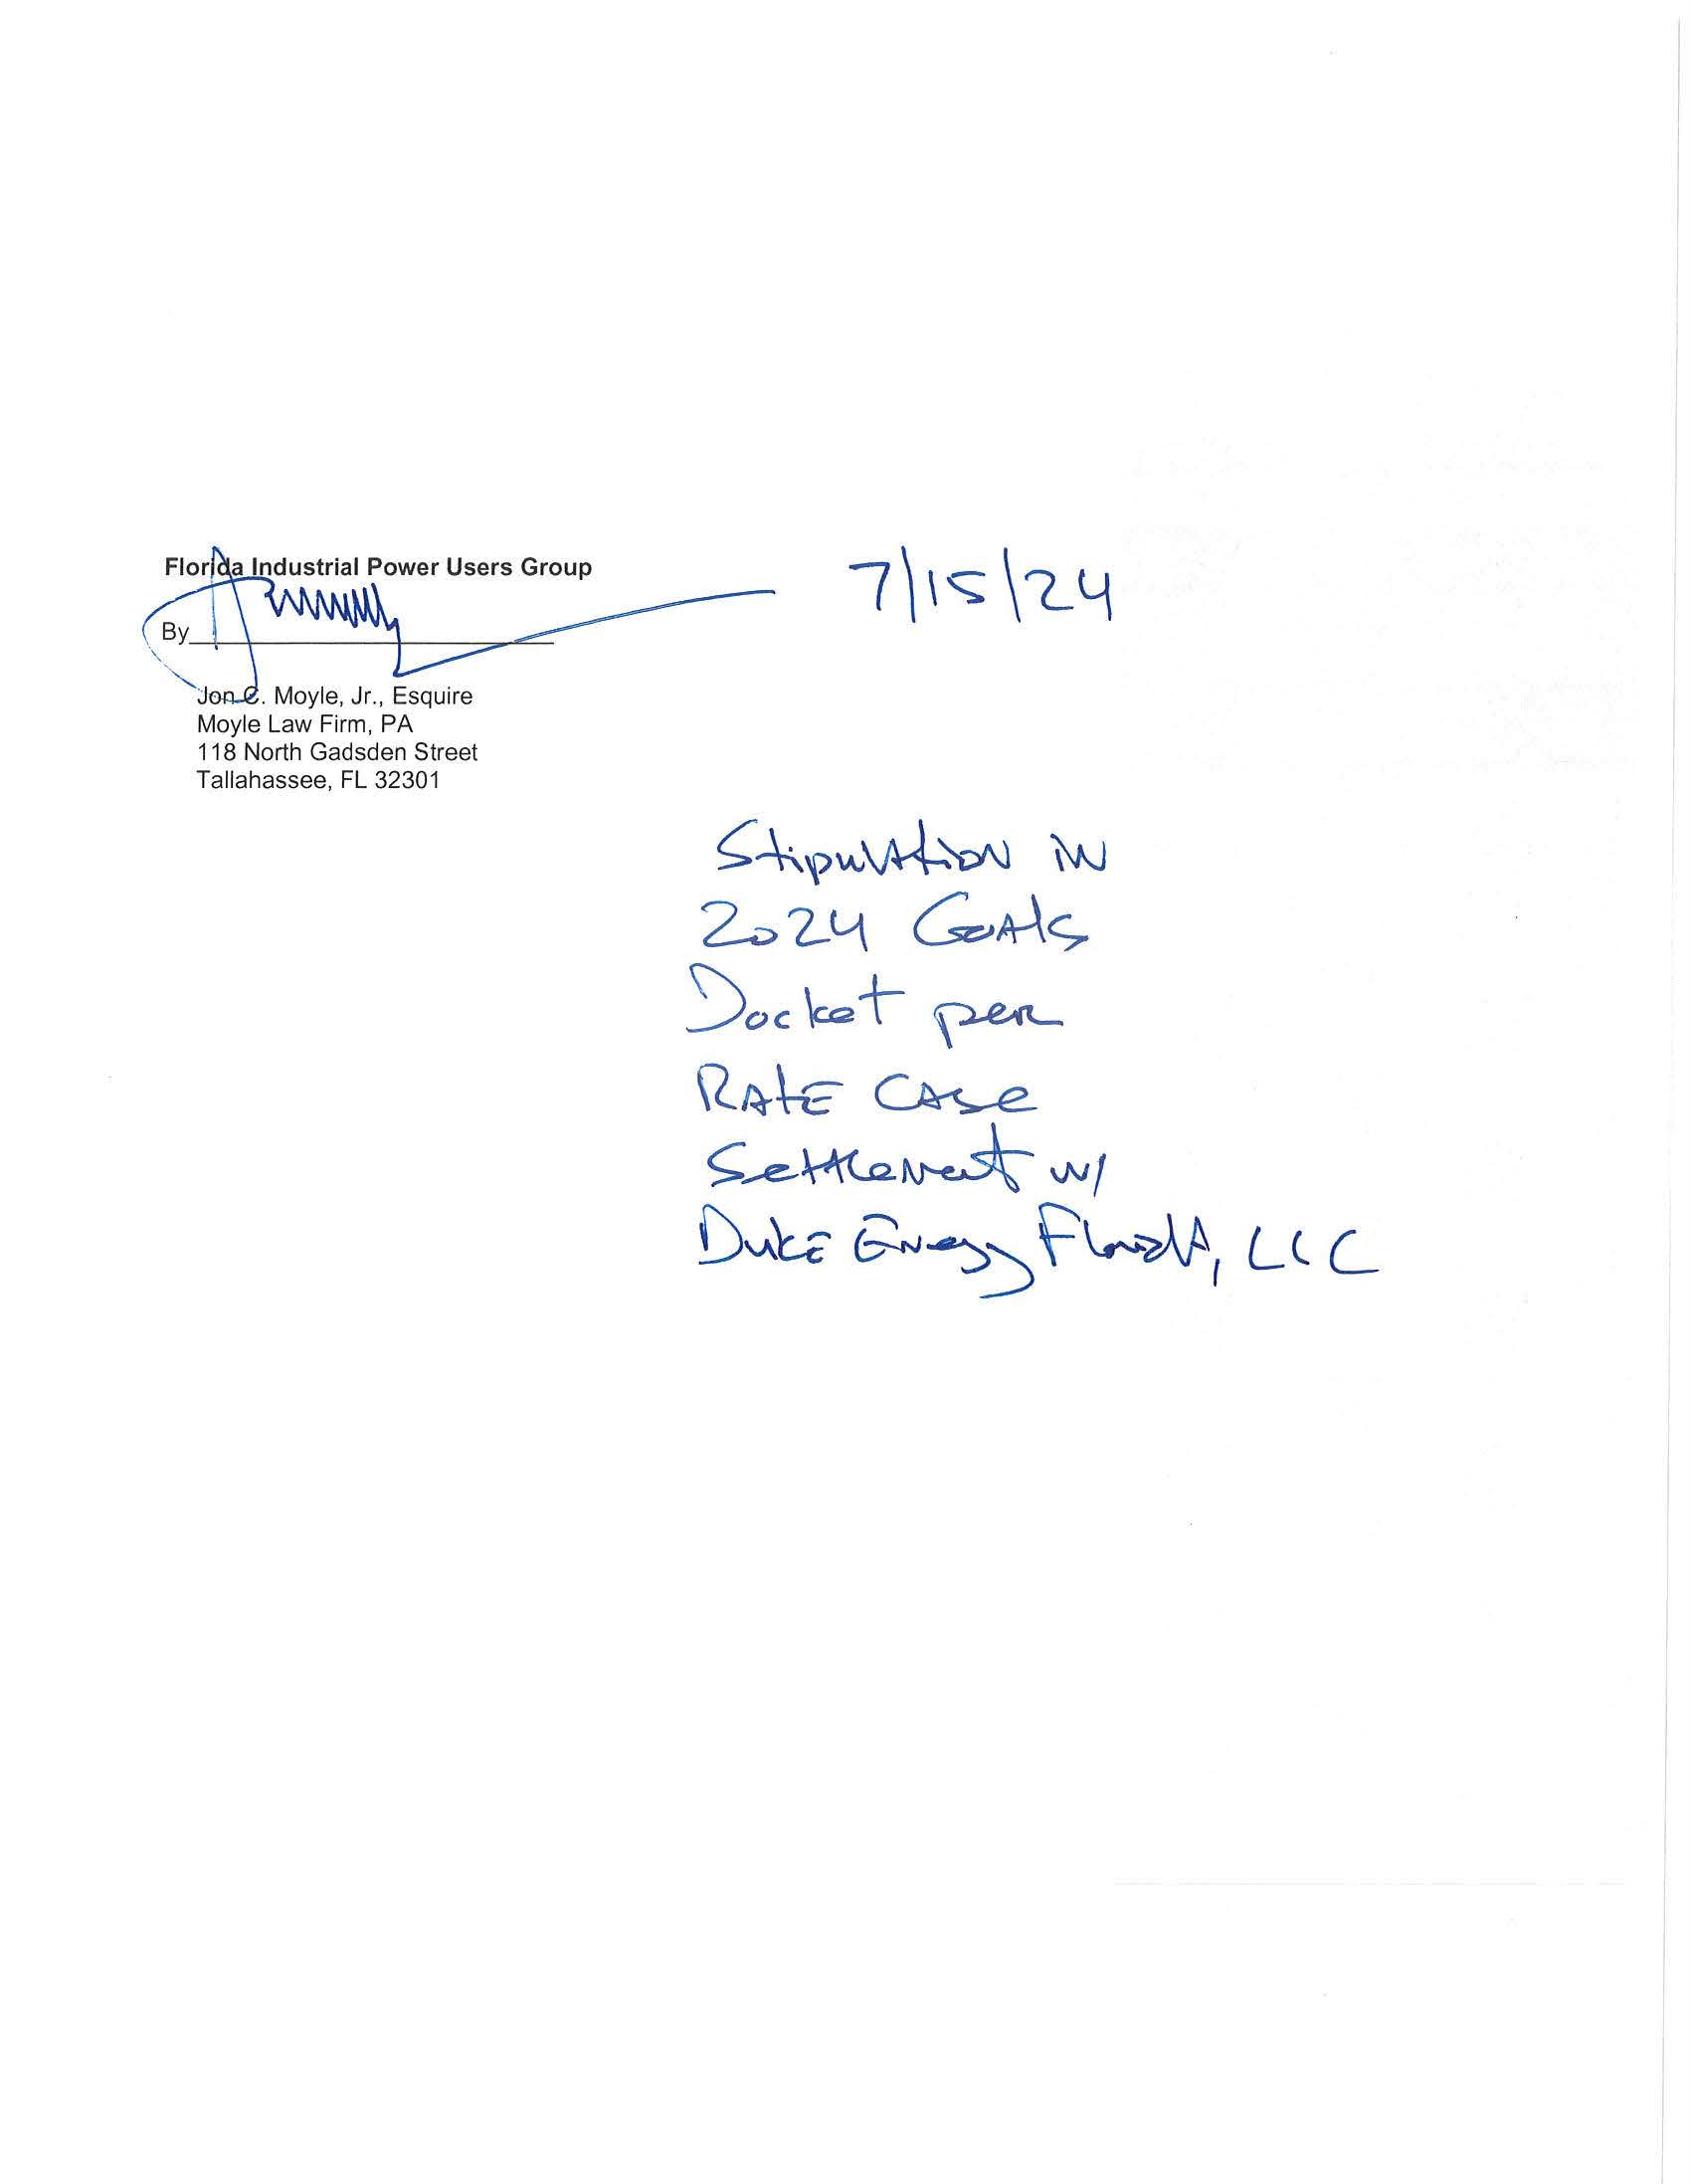 Florida Industrial Power Users Group
7/15/24
By
Jon C. Moyle, Jr., Esquire
Moyle Law Firm, PA
118 North Gadsden Street
Tallahassee, FL 32301
Stipulation in
2024 Goals
Docket per
Rate Case
Settlement w/
Duke Energy Florida, LLC